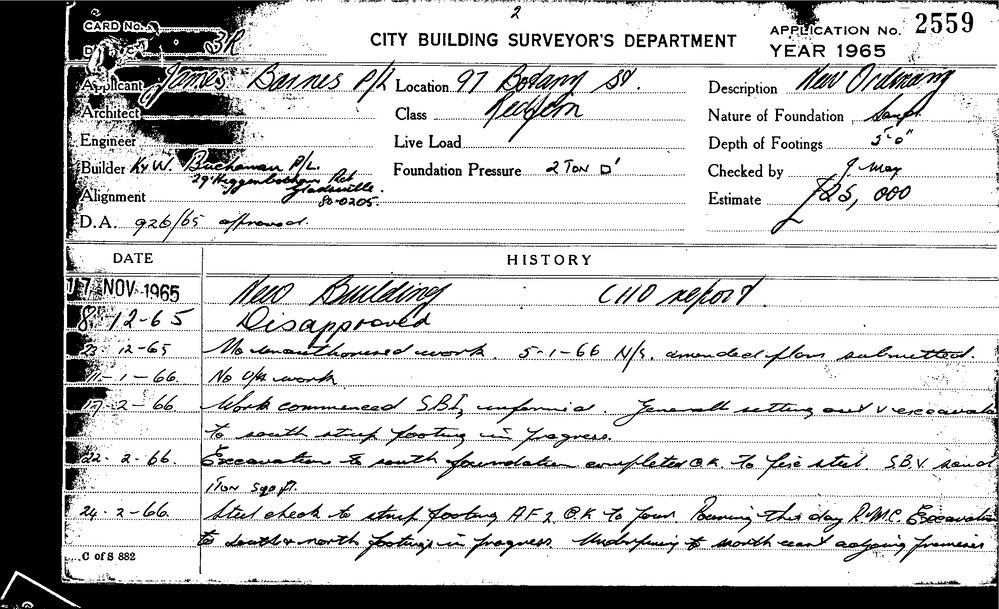 2
CARD No.
3R
CITY BUILDING SURVEYOR'S DEPARTMENT
APPLICATION No. 2559
YEAR 1965
Applicant James Barnes P/L
Location 97 Botany St.
Redfern
Description New
Architect
Class
Nature of Foundation Sand
Engineer
Live Load
Depth of Footings 5'-0"
Builder K & W. Buchanan P/L.
29 Higginbotham Rd
Gladesville.
80-0205.
Foundation Pressure 2 Ton □'
Checked by
Alignment
Estimate £25,000
D.A. 926/65 approved.
DATE
HISTORY
17 NOV 1965 New Building CHO report.
8-12-65 Disapproved
12-65 No unauthorised work. 5-1-66 N/S. amended plan submitted.
11-1-66. No U/A work.
17-2-66 Work commenced SBI, informed. General setting out &
to south strip footing in progress.
22-2-66. Excavation to south foundation completed OK. To fix steel SBV sand
1 Ton sq ft.
24-2-66 Steel check to strip footing AF2 OK to pour. Pouring this day R.M.C. Excavation
to south & north footings in progress. Underpinning to north adjoining premises
C of S 882